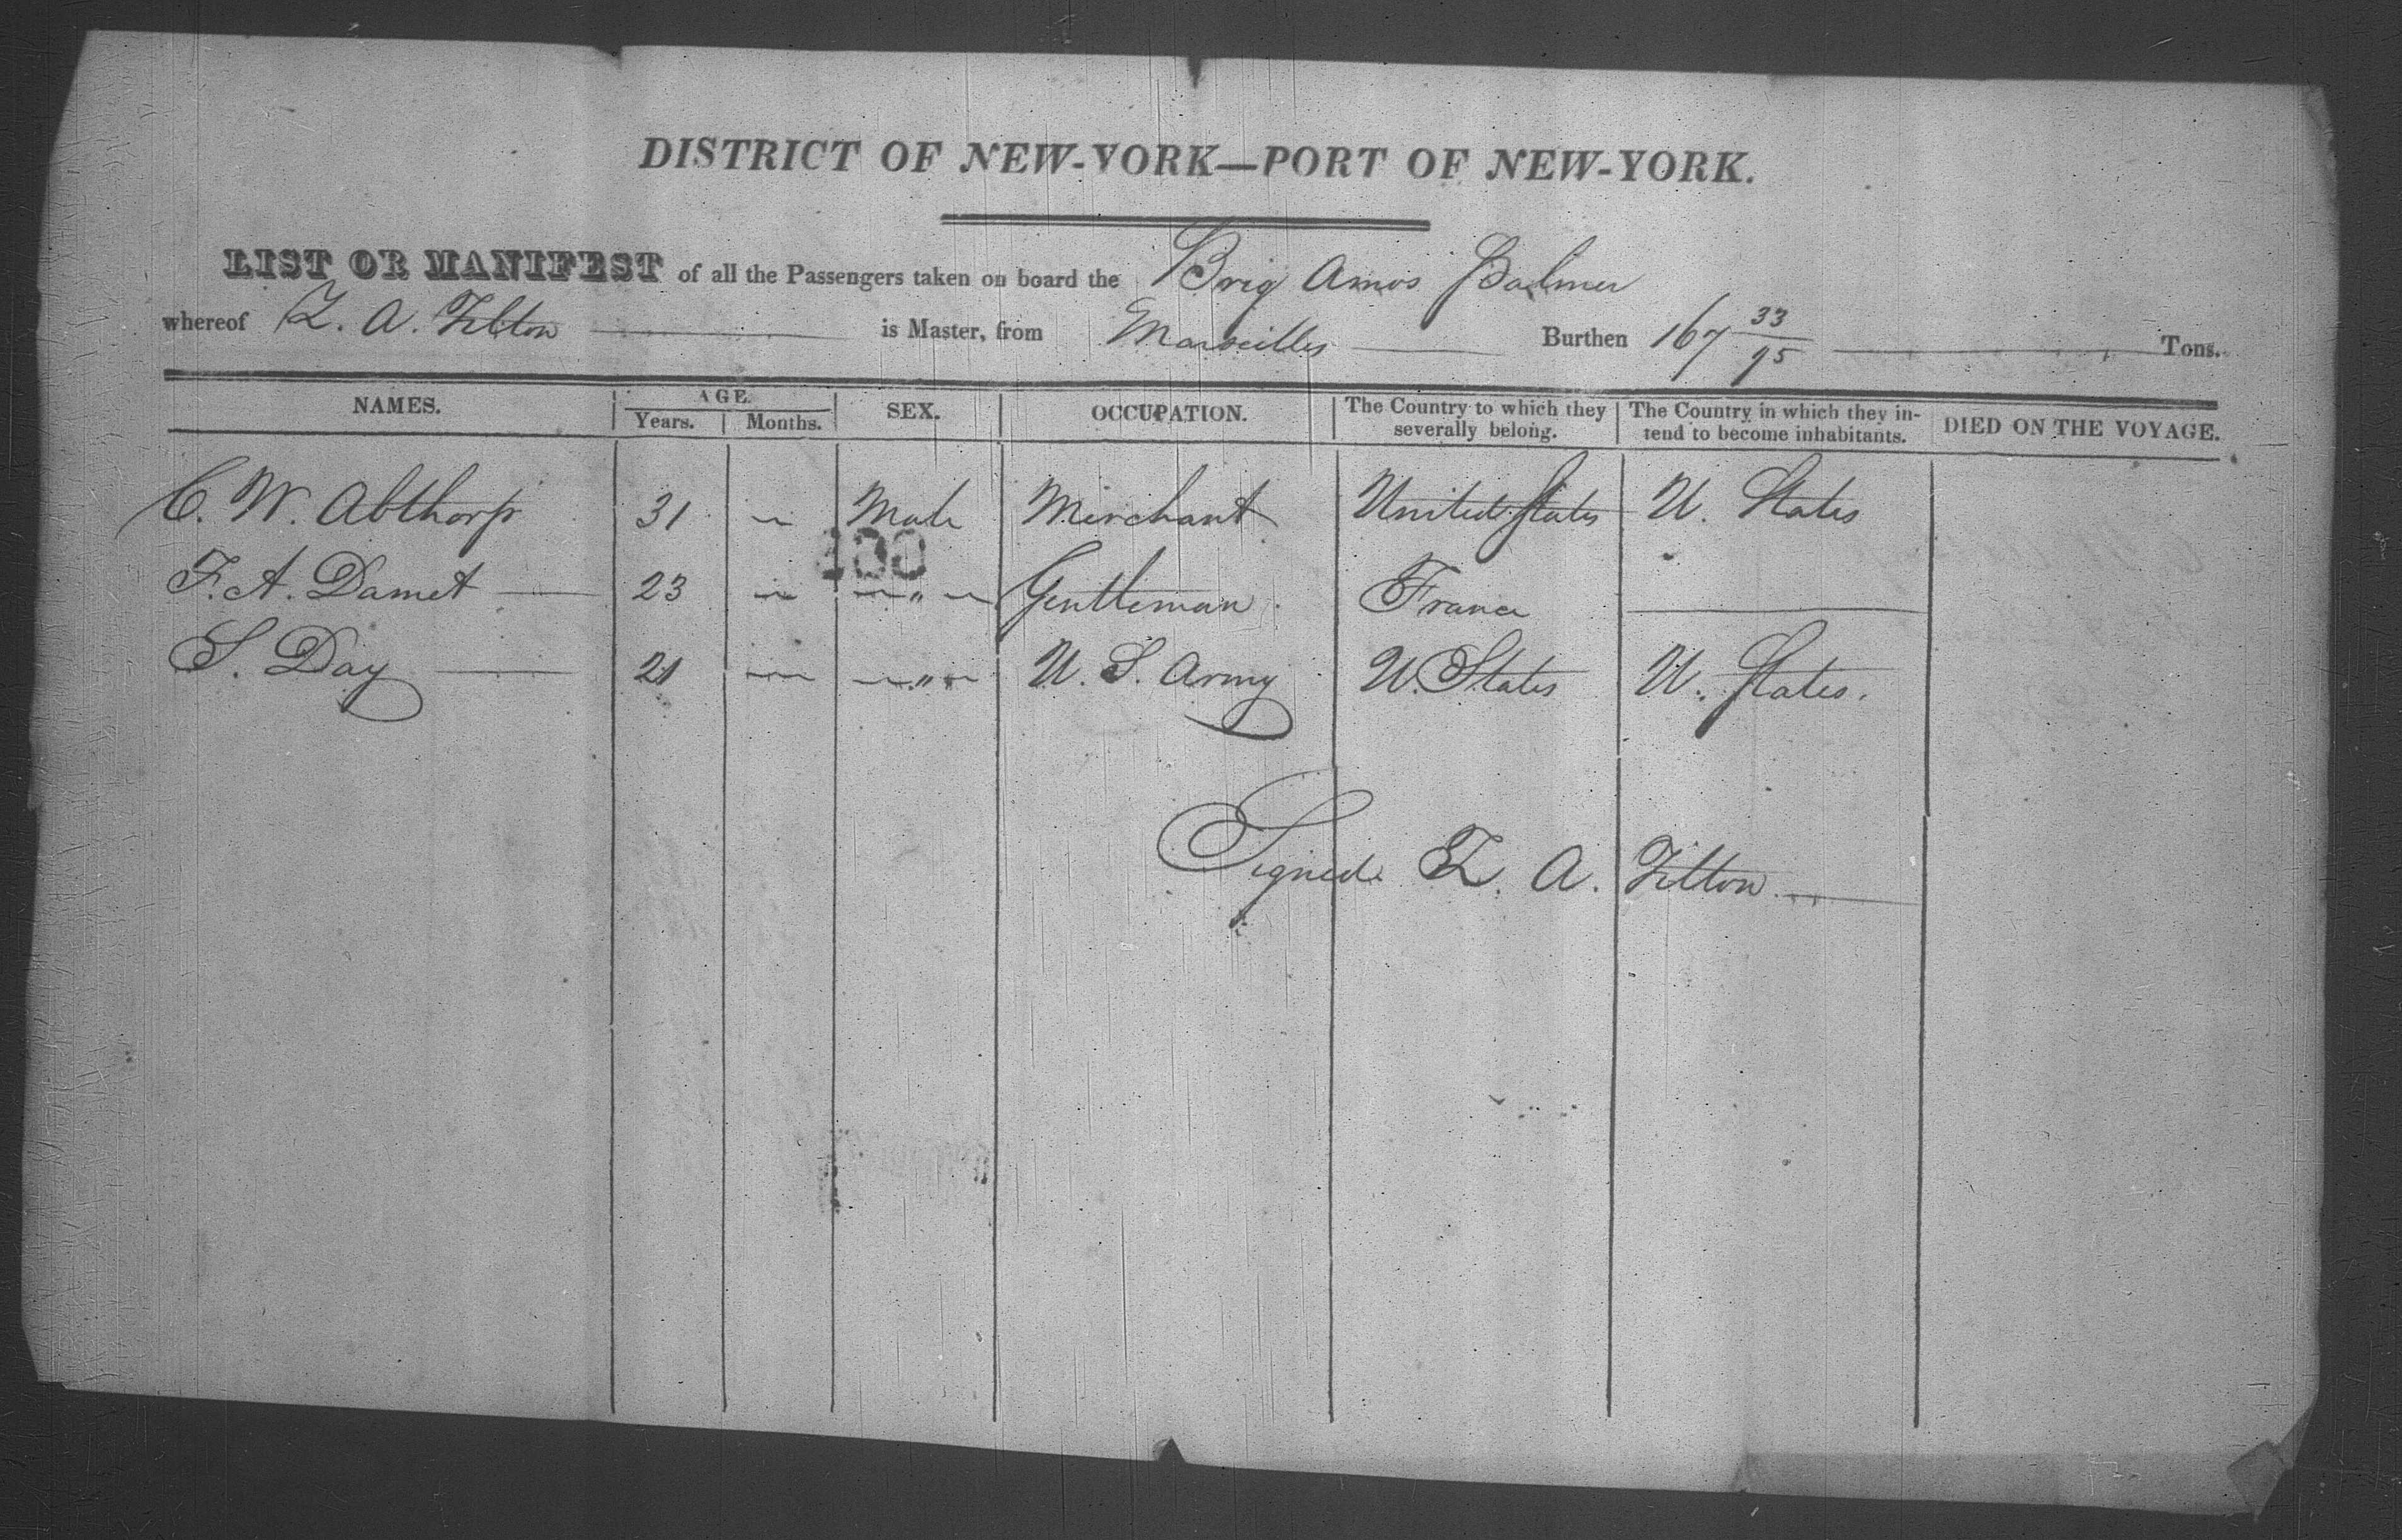 DISTRICT OF NEW-YORK—PORT OF NEW-YORK.
LIST OR MANIFEST of all the Passengers taken on board the Brig Amos Palmer
whereof Z. A. Tilton is Master, from Marseilles Burthen 167 33/95 Tons.
NAMES. AGE. Years. Months. SEX. OCCUPATION. The Country to which they severally belong. The Country in which they intend to become inhabitants. DIED ON THE VOYAGE.
C. W. Abthorp 31 Male Merchant United States U. States
F. A. Damet 23 " Gentleman France
S. Day 21 " U. S. Army U. States U. States.
Signed Z. A. Tilton